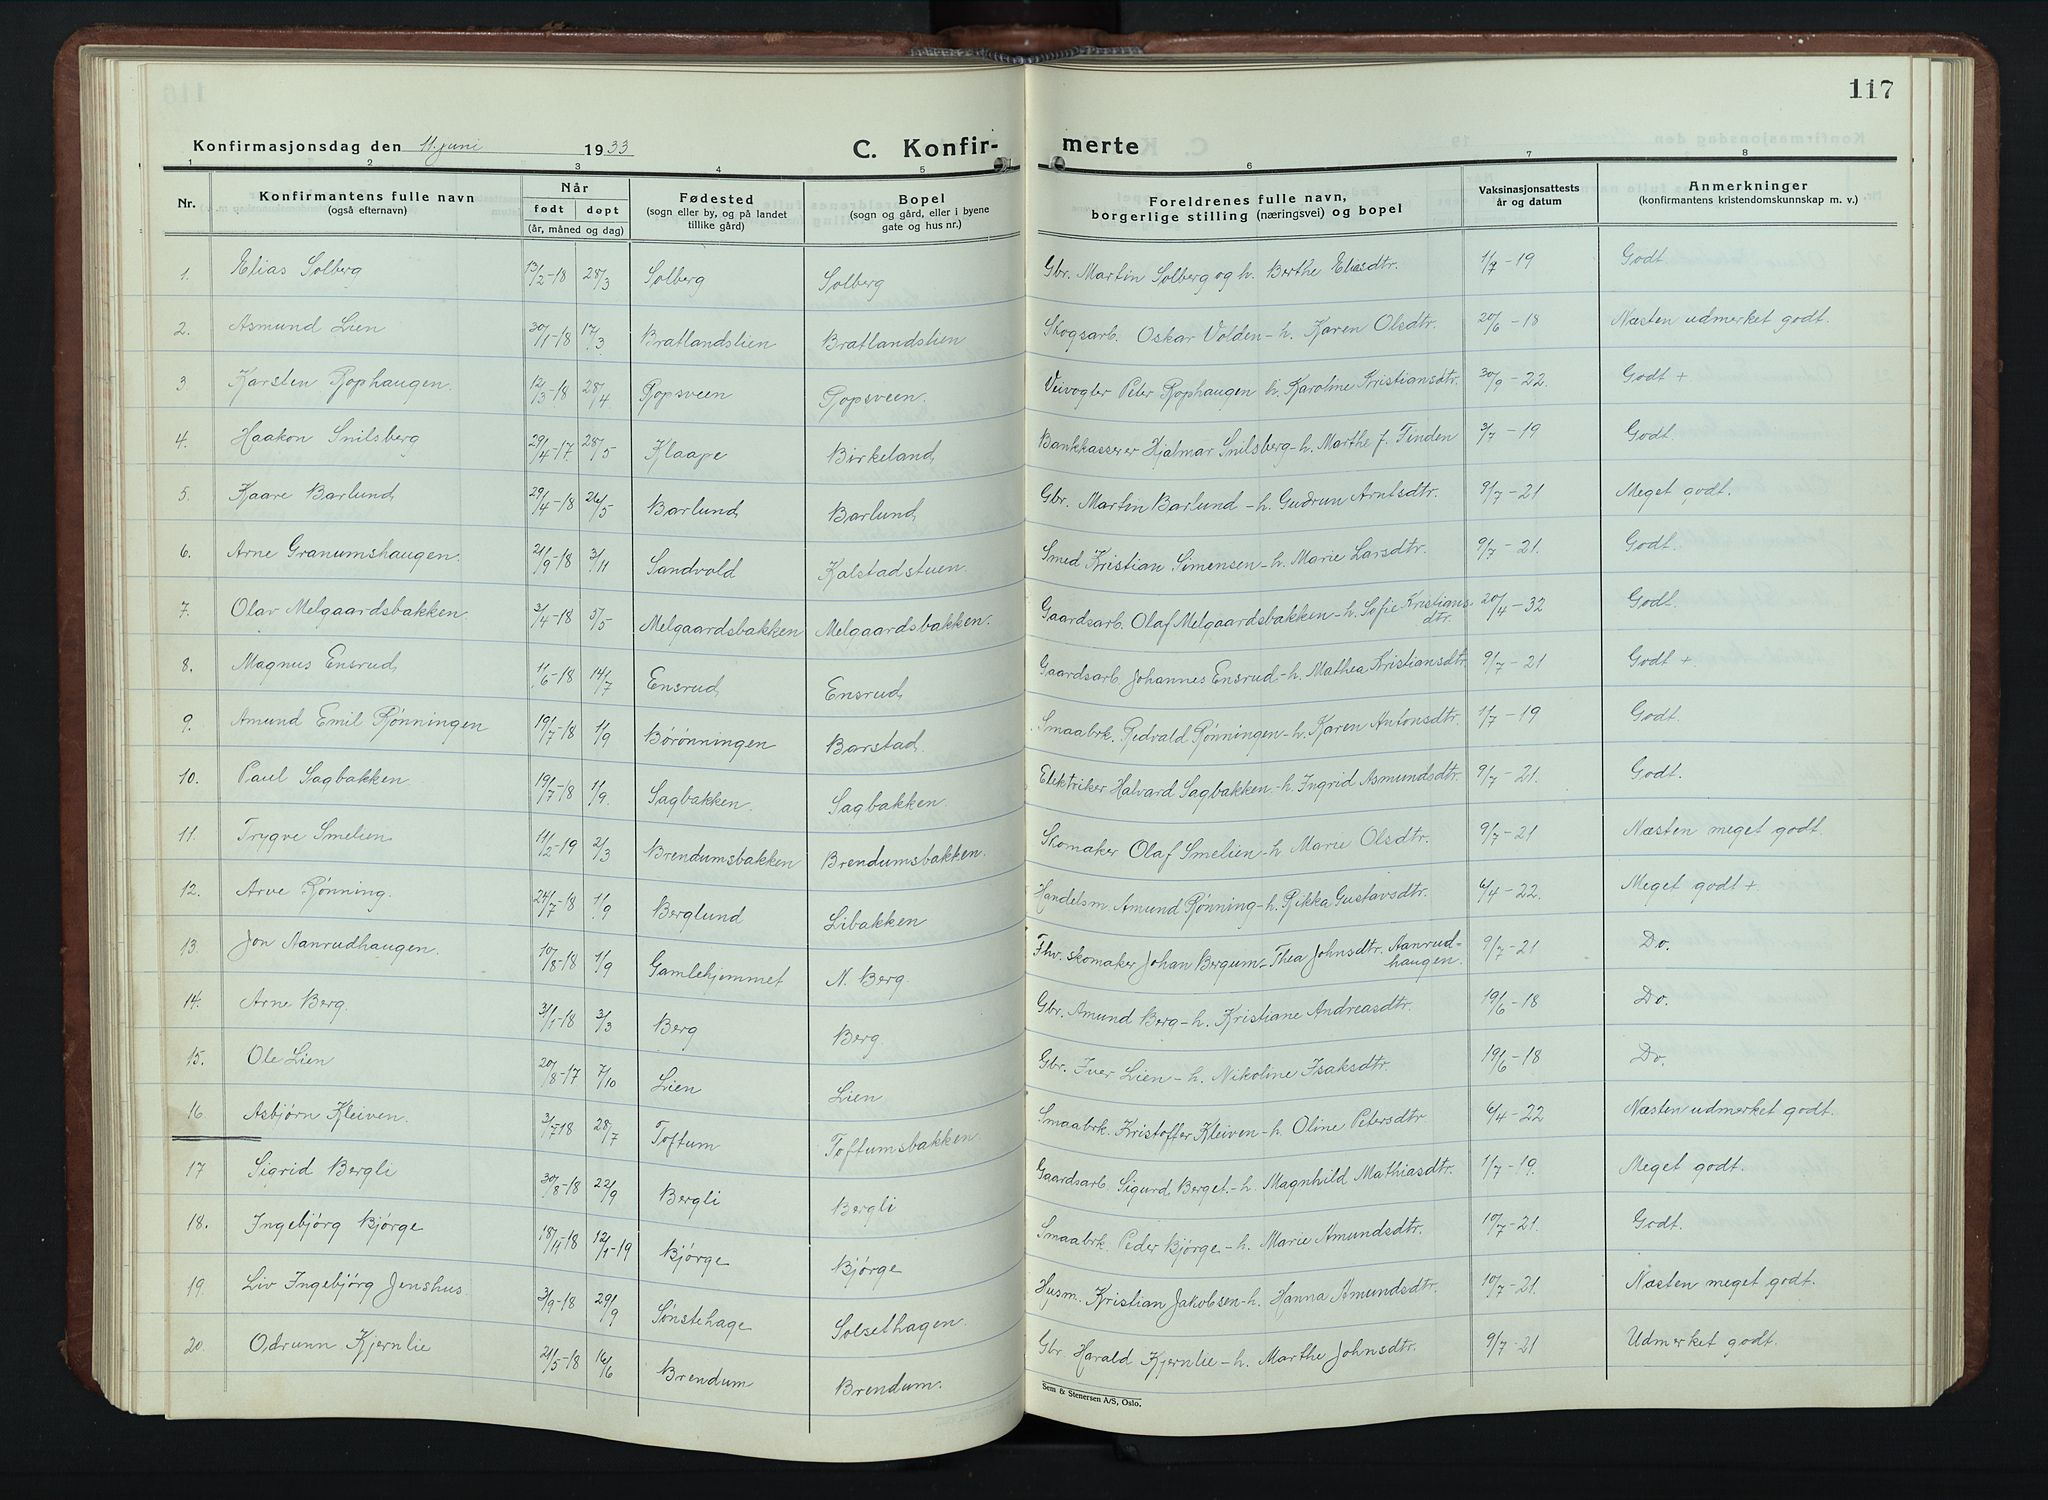 117
Konfirmasjonsdag den 11. juni 1933 C. Konfir-
merte
1 2 3 4 5 6 7 8
Nr. Konfirmantens fulle navn (også efternavn) Når født døpt (år, måned og dag) Fødested (sogn eller by, og på landet tillike gård) Bopel (sogn og gård, eller i byene gate og hus nr.) Foreldrenes fulle navn, borgerlige stilling (næringsvei) og bopel Vaksinasjonsattests år og datum Anmerkninger (konfirmantens kristendomskunnskap m. v.)
1. Elias Solberg 13/2-18 28/3 Solberg Solberg Gbr. Martin Solberg og h. Berthe Eliasdtr. 1/7-19 Godt
2. Asmund Lien 30/1-18 17/3 Bratlandslien Bratlandslien Skogsarb. Oskar Volden-h. Karen Olsdtr. 20/6-18 Næsten udmerket godt.
3 Karsten Rophaugen. 12/3-18 28/4 Ropsveen Ropsveen. Veivogter Peter Rophaugen h. Karoline Kristiansdtr. 30/9-22. Godt +
4. Haakon Snilsberg 29/4-17. 28/5 Klaape Birkeland Bankkasserer Hjalmar Snilsberg-h. Marthe f. Tinden 3/7-19 Godt.
5. Kaare Barlund 29/4-18 26/5 Barlund Barlund Gbr. Martin Barlund-h. Gudrun Arntsdtr. 9/7-21 Meget godt.
6. Arne Granumshaugen. 21/9-18 3/11 Sandvold Kalstadstuen. Smed Kristian Simensen-h. Marie Larsdtr. 9/7-21. Godt.
7. Olav Melgaardsbakken. 3/4-18 5/5 Melgaardsbakken Melgaardsbakken. Gaardsarb. Olaf Melgaardsbakken-h. Sofie Kristiansdtr. 20/4-32 Godt.
8. Magnus Ensrud 11/6-18 14/7 Ensrud Ensrud Gaardsarb. Johannes Ensrud-h. Mathea Kristiansdtr. 9/7-21 Godt +.
9. Amund Emil Rønningen 19/7-18 1/9 Børønningen Barstad. Smaabrk. Redvald Rønningen-h. Karen Antonsdtr. 1/7-19 Godt.
10. Paul Sagbakken 19/7-18 1/9. Sagbakken. Sagbakken. Elektriker Halvard Sagbakken-h. Ingrid Asmundsdtr. 9/7-21. Godt.
11. Trygve Smelien 11/2-19 2/3 Brendumsbakken Brendumsbakken. Skomaker Olaf Smelien-h Marie Olsdtr. 9/7-21 Næsten meget godt.
12. Arve Rønning. 24/7-18 1/9 Berglund Libakken Handelsm. Amund Rønning-h. Rikka Gustavsdtr. 6/4-22. Meget godt +.
13. Jon Aanrudhaugen. 10/8-18 1/9 Gamlehjemmet N. Berg. Fhv. skomaker Johan Bergum-Thea Johnsdtr. Aanrudhaugen. 9/7-21 Do.
14. Arne Berg. 31/1-18 3/3 Berg Berg. Gbr. Amund Berg-h. Kristiane Andreasdtr. 19/6-18 Do.
15. Ole Lien 20/8-17 7/10 Lien Lien Gbr. Iver Lien-h. Nikoline Isaksdtr. 19/6-18 Do.
16. Asbjørn Kleiven. 28/7 Toftum Toftumsbakken. Smaabrk. Kristoffer Kleiven-h. Oline Petersdtr 6/4-22 Næsten udmerket godt.
17 Sigrid Bergli 30/8-18 22/9 Bergli Bergli Gaardsarb. Sigurd Berget.-h. Magnhild Mathiasdtr. 1/7-19. Meget godt.
18. Ingebjørg Bjørge 18/11-18 12/1-19 Bjørge Bjørge Smaabrk. Peder Bjørge-h. Marie Amundsdtr. 10/7-21. Godt.
19. Liv Ingebjørg Jenshus. 3/9-18 29/9 Sønstehage Solsethagen. Husm. Kristian Jakobsen-h. Hanna Amundsdtr. 10/7-21. Næsten meget godt.
20. Odrunn Kjernlie 21/5-18 16/6 Brendum Brendum. Gbr. Harald Kjernlie-h. Marthe Johnsdtr. 9/7-21 Udmerket godt.
Sem & Stenersen A/S, Oslo.